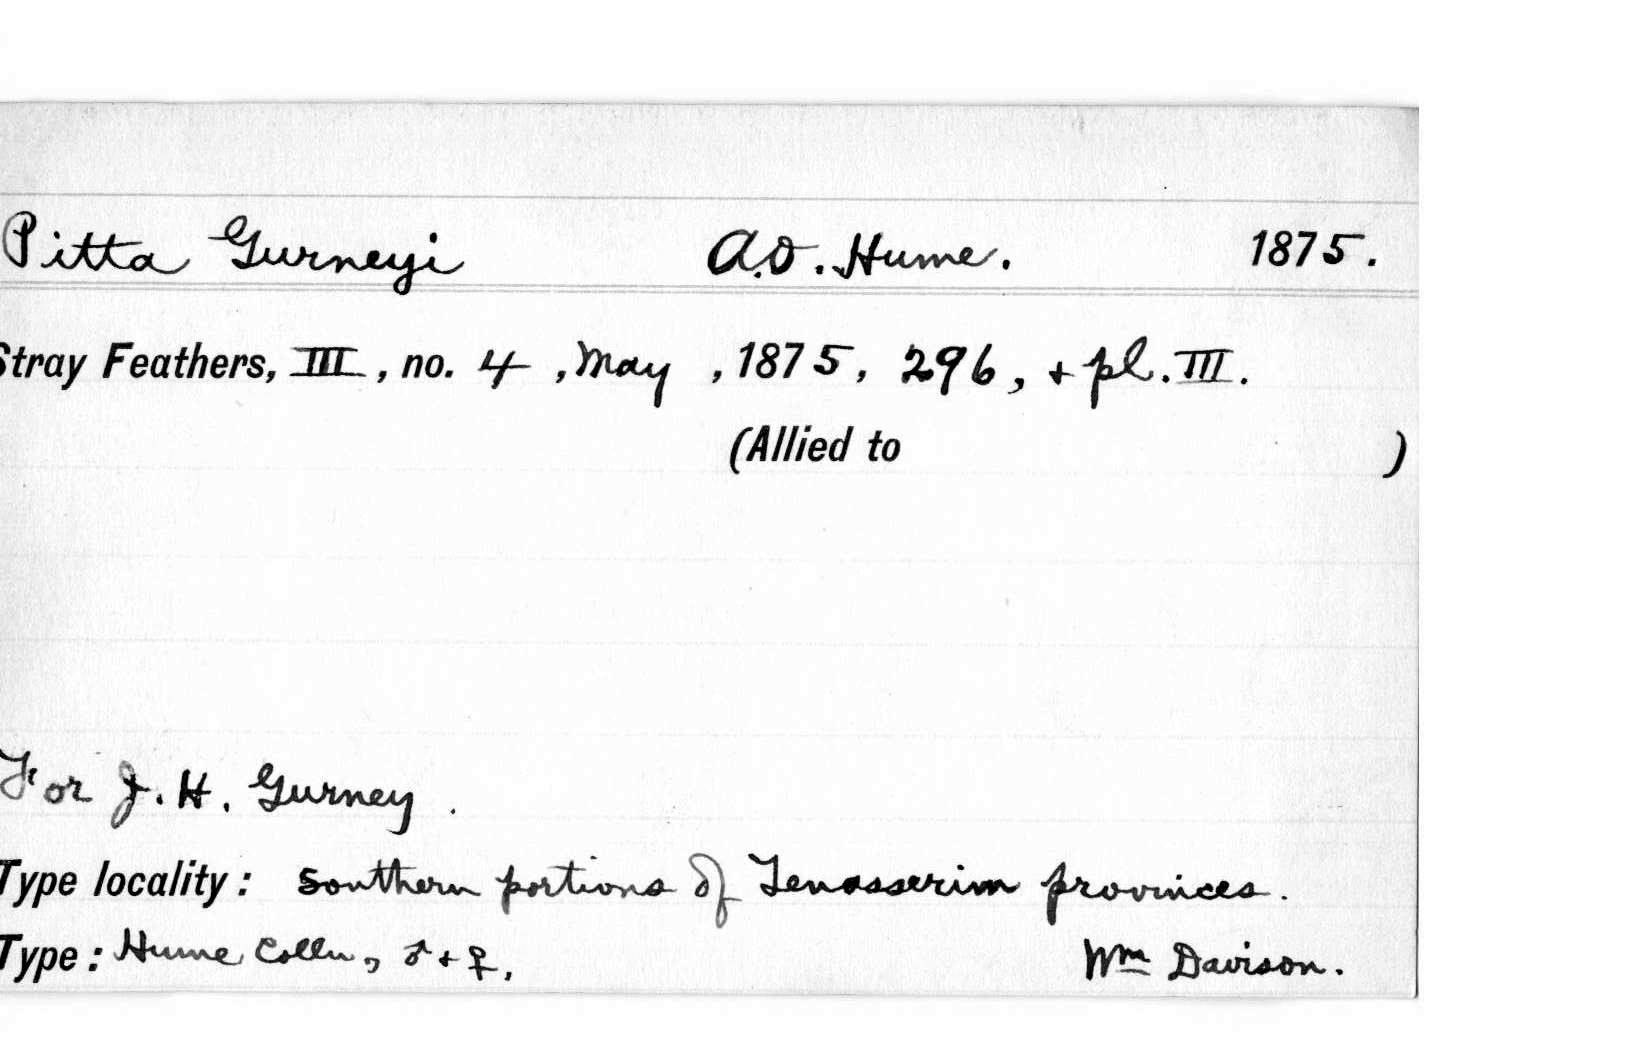 Pitta Gurneyi A.O. Hume. 1875.
Stray Feathers, III, no. 4, May, 1875, 296, + pl. III.
(Allied to )
For J. H. Gurney.
Type locality: Southern portions of Tenasserim provinces.
Type: Hume Colln, ♂ + ♀. Wm Davison.